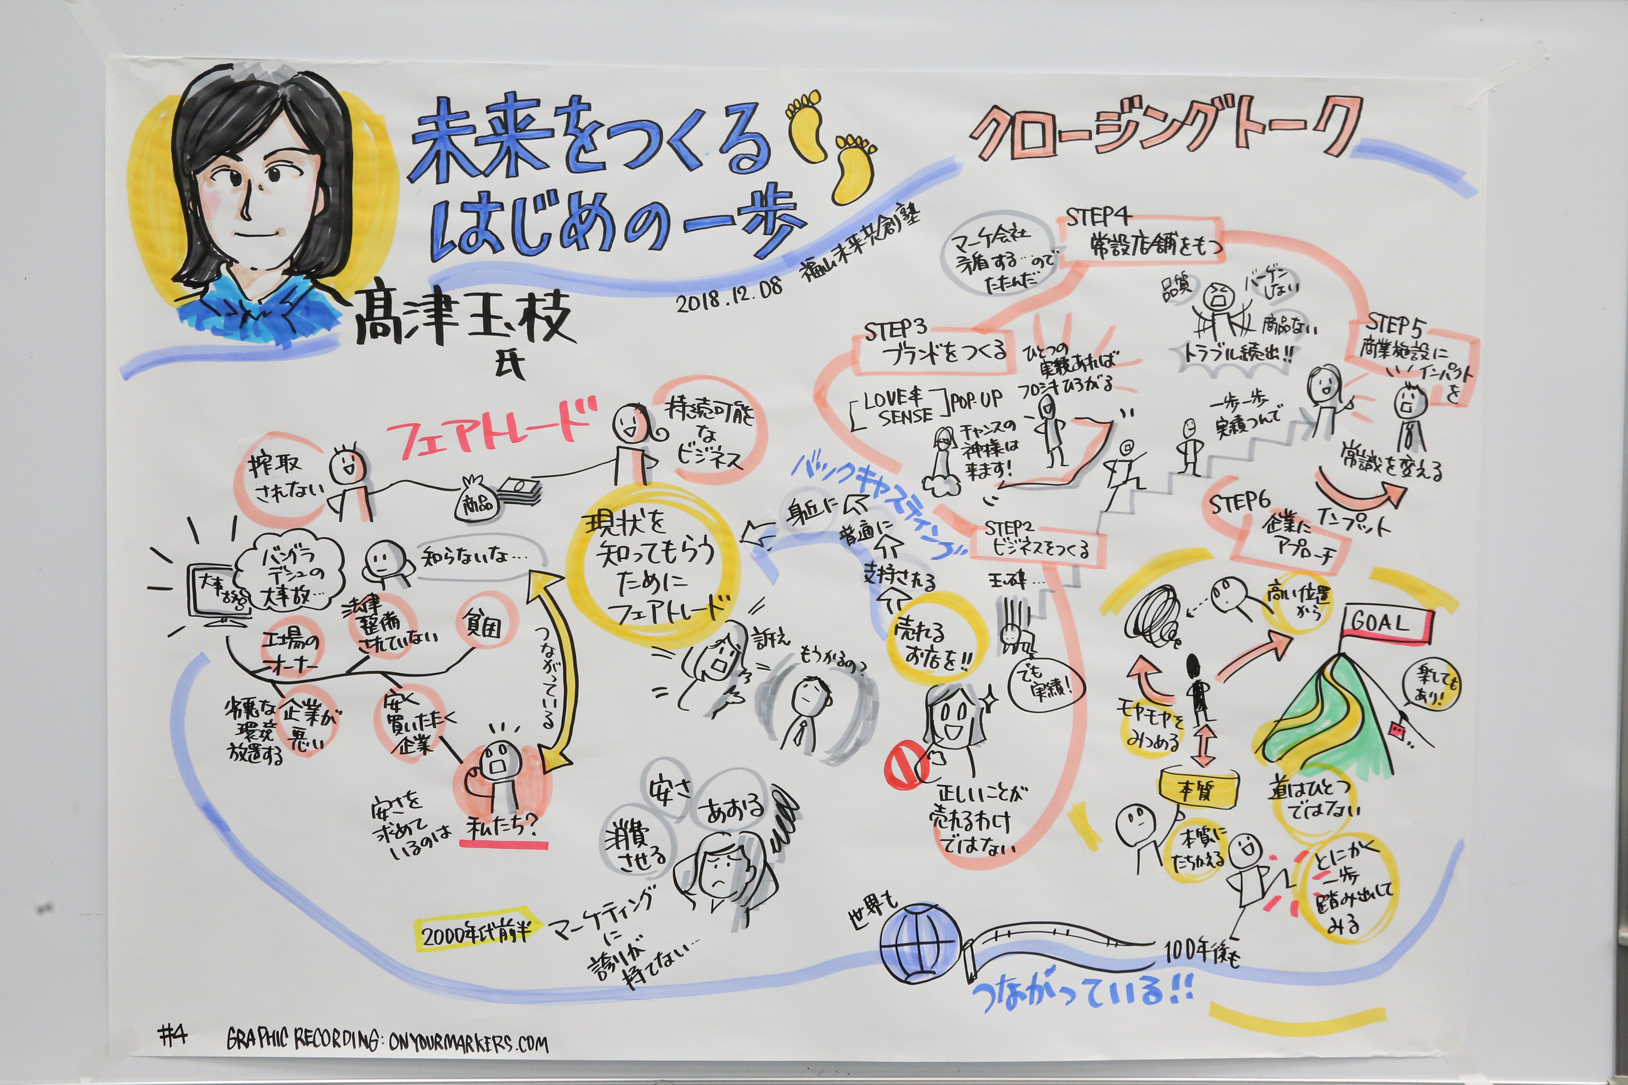 未来をつくる
はじめの一歩
クロージングトーク
高津玉枝
氏
2018.12.08 福山未来共創塾
フェアトレード
搾取
されない
商品
持続可能
な
ビジネス
大事故
バングラ
デシュの
大事故…
知らないな…
工場の
オーナー
法律
整備
されていない
貧困
劣悪な
環境
放置する
企業が
悪い
安く
買いたたく
企業
安さを
求めて
いるのは
私たち?
つながっている
現状を
知ってもらう
ために
フェアトレード
訴え
もうかるの?
安さ
あおる
消費
させる
2000年代前半
マーケティング
に
誇りが
持てない…
バックキャスティング
身近に
普通に
支持される
売れる
お店を!!
正しいことが
売れるわけ
ではない
STEP2
ビジネスをつくる
玉砕…
でも
実績!
STEP3
ブランドをつくる
LOVE&
SENSE
POP UP
チャンスの
神様は
来ます!
ひとつの
実績あれば
フロシキひろがる
マーケ会社
矛盾する…ので
たたんだ
STEP4
常設店舗をもつ
品質
バーゲン
しない
商品ない
トラブル続出!!
一歩一歩
実績つんで
STEP5
商業施設に
インパクト
を
常識を変える
インプット
STEP6
企業に
アプローチ
高い位置
から
モヤモヤを
みつめる
本質
本質に
たちかえる
GOAL
楽しても
あり!
道はひとつ
ではない
とにかく
一歩
踏み出して
みる
世界も
100年後も
つながっている!!
#4
GRAPHIC RECORDING: ONYOURMARKERS.COM